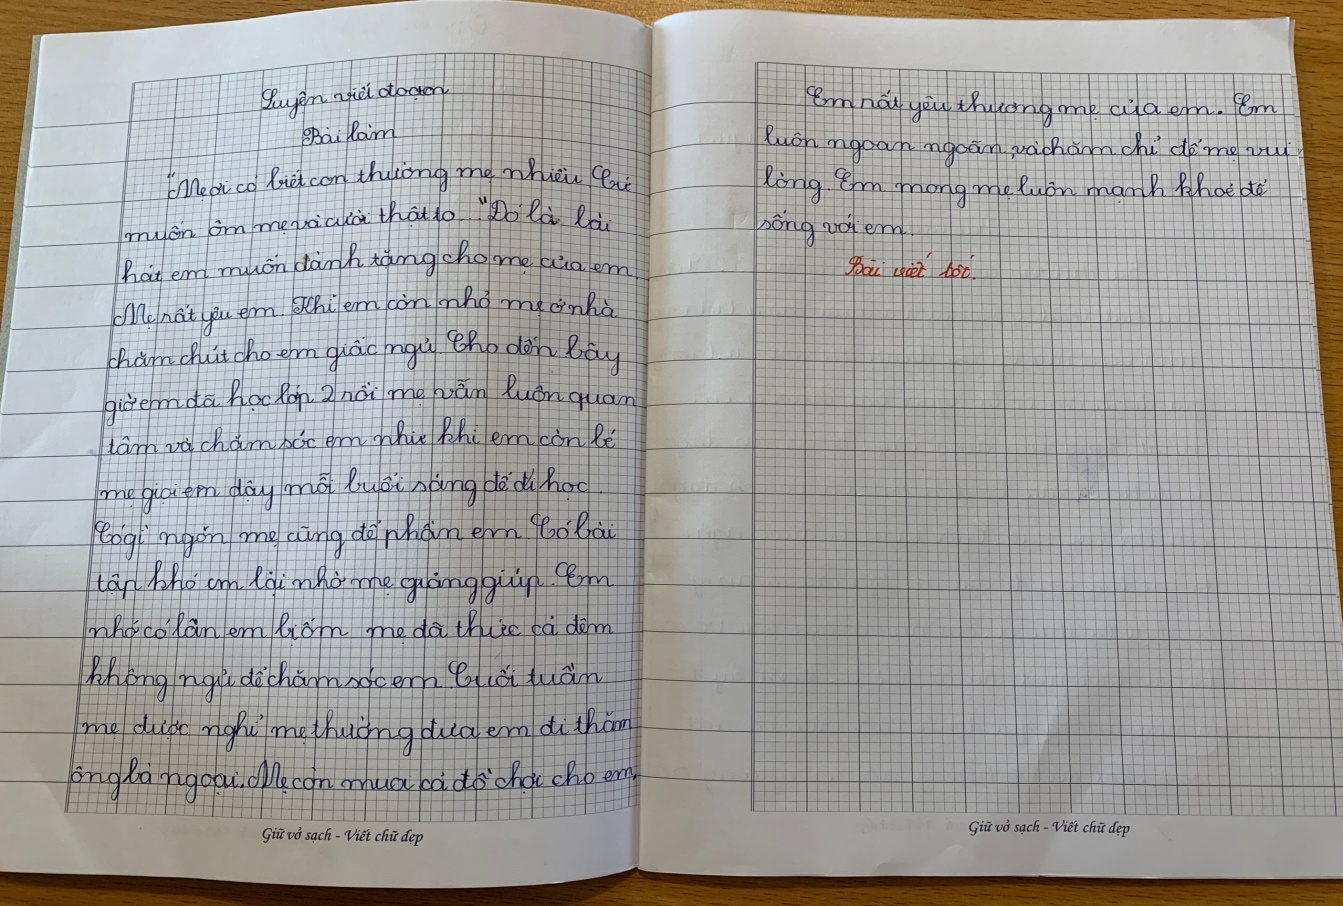 Luyện viết đoạn
Bài làm
"Mẹ ơi có biết con thương mẹ nhiều Cứ
muốn ôm mẹ và cười thật to "Đó là bài
hát em muốn dành tặng cho mẹ của em
Mẹ rất yêu em. Khi em còn nhỏ mẹ ở nhà
chăm chút cho em giấc ngủ. Cho đến bây
giờ em đã học lớp 2 rồi mẹ vẫn luôn quan
tâm và chăm sóc em như khi em còn bé
mẹ gọi em dậy mỗi buổi sáng để đi học.
Có gì ngon mẹ cũng để phần em. Có bài
tập khó em lại nhờ mẹ giảng giúp. Em
nhớ có lần em bị ốm mẹ đã thức cả đêm
không ngủ để chăm sóc em Cuối tuần
mẹ được nghỉ mẹ thường đưa em đi thăm
ông bà ngoại. Mẹ còn mua cả đồ chơi cho em,
Giữ vở sạch - Viết chữ đẹp
Em rất yêu thương mẹ của em. Em
luôn ngoan ngoãn, và chăm chỉ để mẹ vui
lòng. Em mong mẹ luôn mạnh khoẻ để
sống với em.
Bài viết tốt.
Giữ vở sạch - Viết chữ đẹp